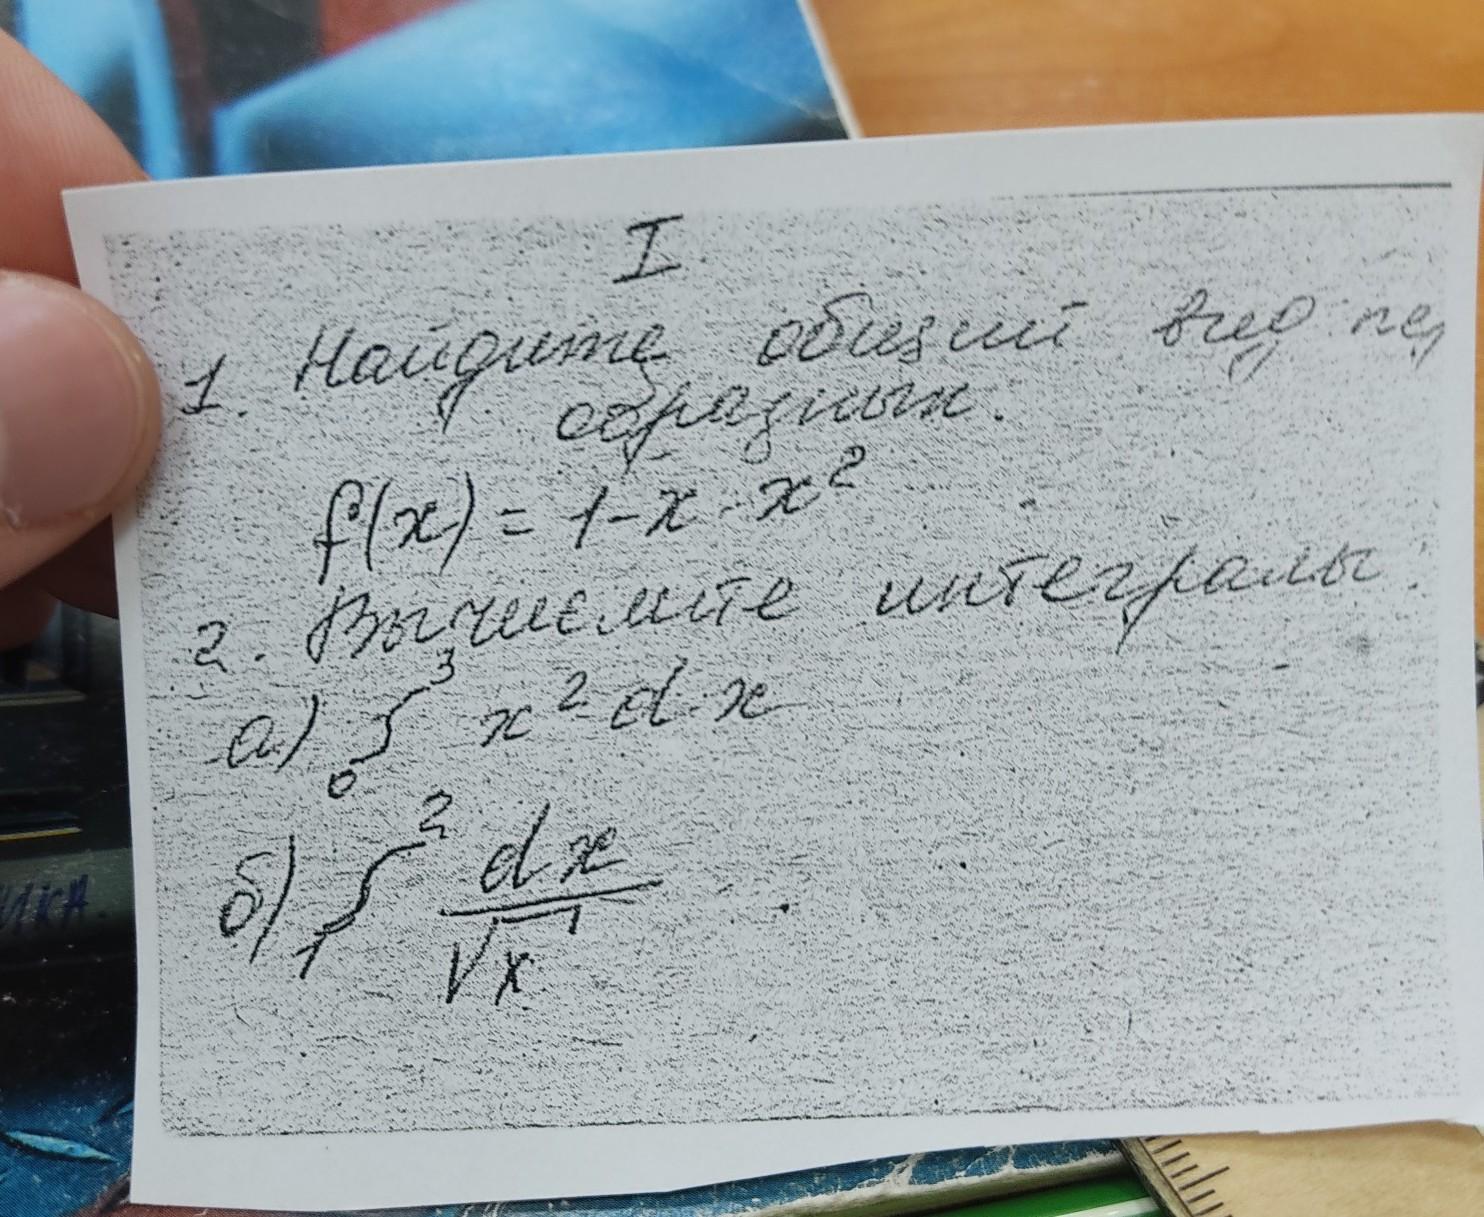 I
1. Найдите общий вид пер
образных.
f(x) = 1 - x - x²
2. Вычислите интегралы:
а) ∫₀³ x² dx
б) ∫₁² dx/√x
ИКА